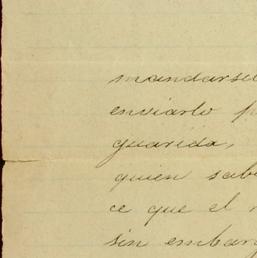 mandarse
enviarlo p
guarida,
quien sab
ce que el
sin embar